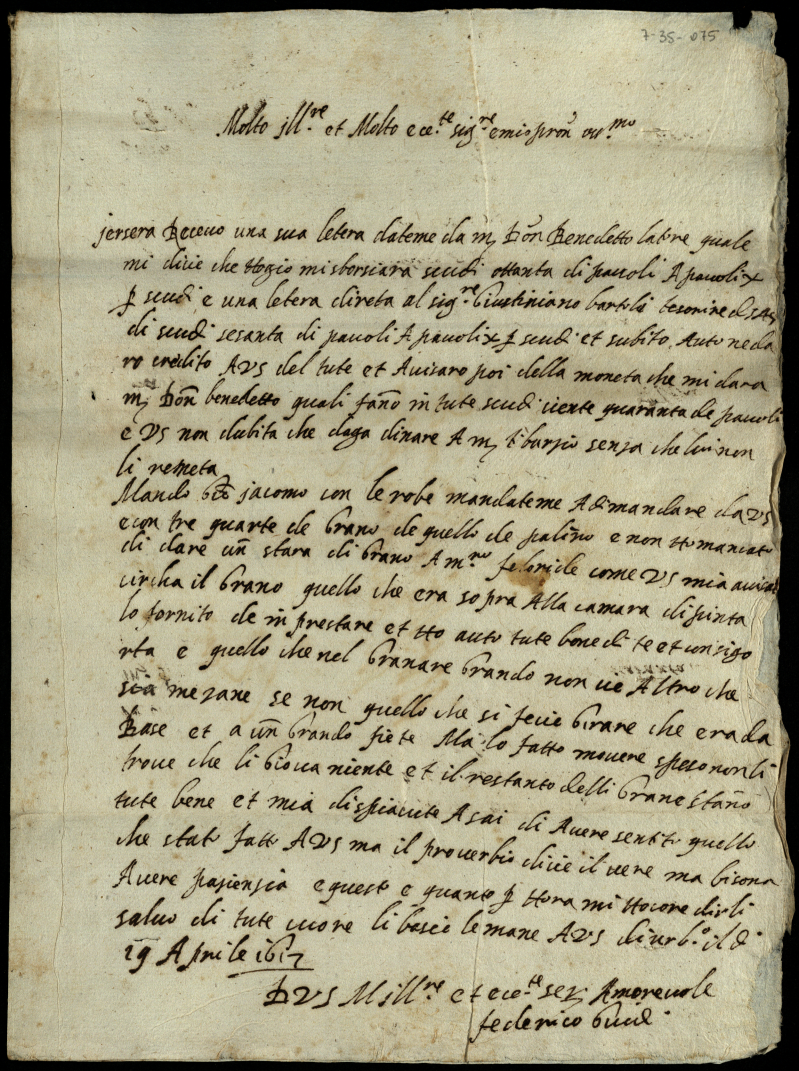 7-35-075
Molto jll.re et Molto ecc.te sig.re e mio pron oss.mo
jersera Receuo una sua letera dateme da m. Don Benedetto quale
mi dicie che ttogio mi sborsiara scudi ottanta di pauoli A pauoli x
p scudi e una letera direta al sig.re Giustiniano bartoli tesorire
di scudi sesanta di pauoli A pauoli x p scudi et subito Auto ne da
ro credito A VS del tute et Auisaro poi della moneta che mi dara
m. Don benedetto quali fano in tute scudi ciente quaranta de pauoli
e VS non dubita che daga dinare A m. tiburzio senza che lui non
li remeta
Mando Gio jacomo con le robe mandateme Adimandare da VS
e con tre quarte de Grano de quello de palino e non tto mancato
di dare un stara di Grano A m.ro felonide come VS mia auisat
circha il Grano quello che era sopra Alla camara dipinta
lo fornito de in prestare et tto auto tute bone di te et consigo
rta e quello che nel Granare Grando non uie Altro che
sia mezane se non quello che si fecie Girare che era da
Base et a un Grando fiete Ma lo fatto mouere speso non li
troue che li Gioua niente et il restanto delli Grane stano
tute bene et mia dispiacute Asai di Auere sentito quello
che stato fatto A VS ma il prouerbio dicie il uere ma bisona
Auere pasiensia e questo e quanto p ttora mi ttocore dirli
saluo di tute cuore li bascio le mane A VS di urb.o il di
19 Aprile 1617
D VS M jll.re et ecc.te ser. Amoreuole
federico Guidi